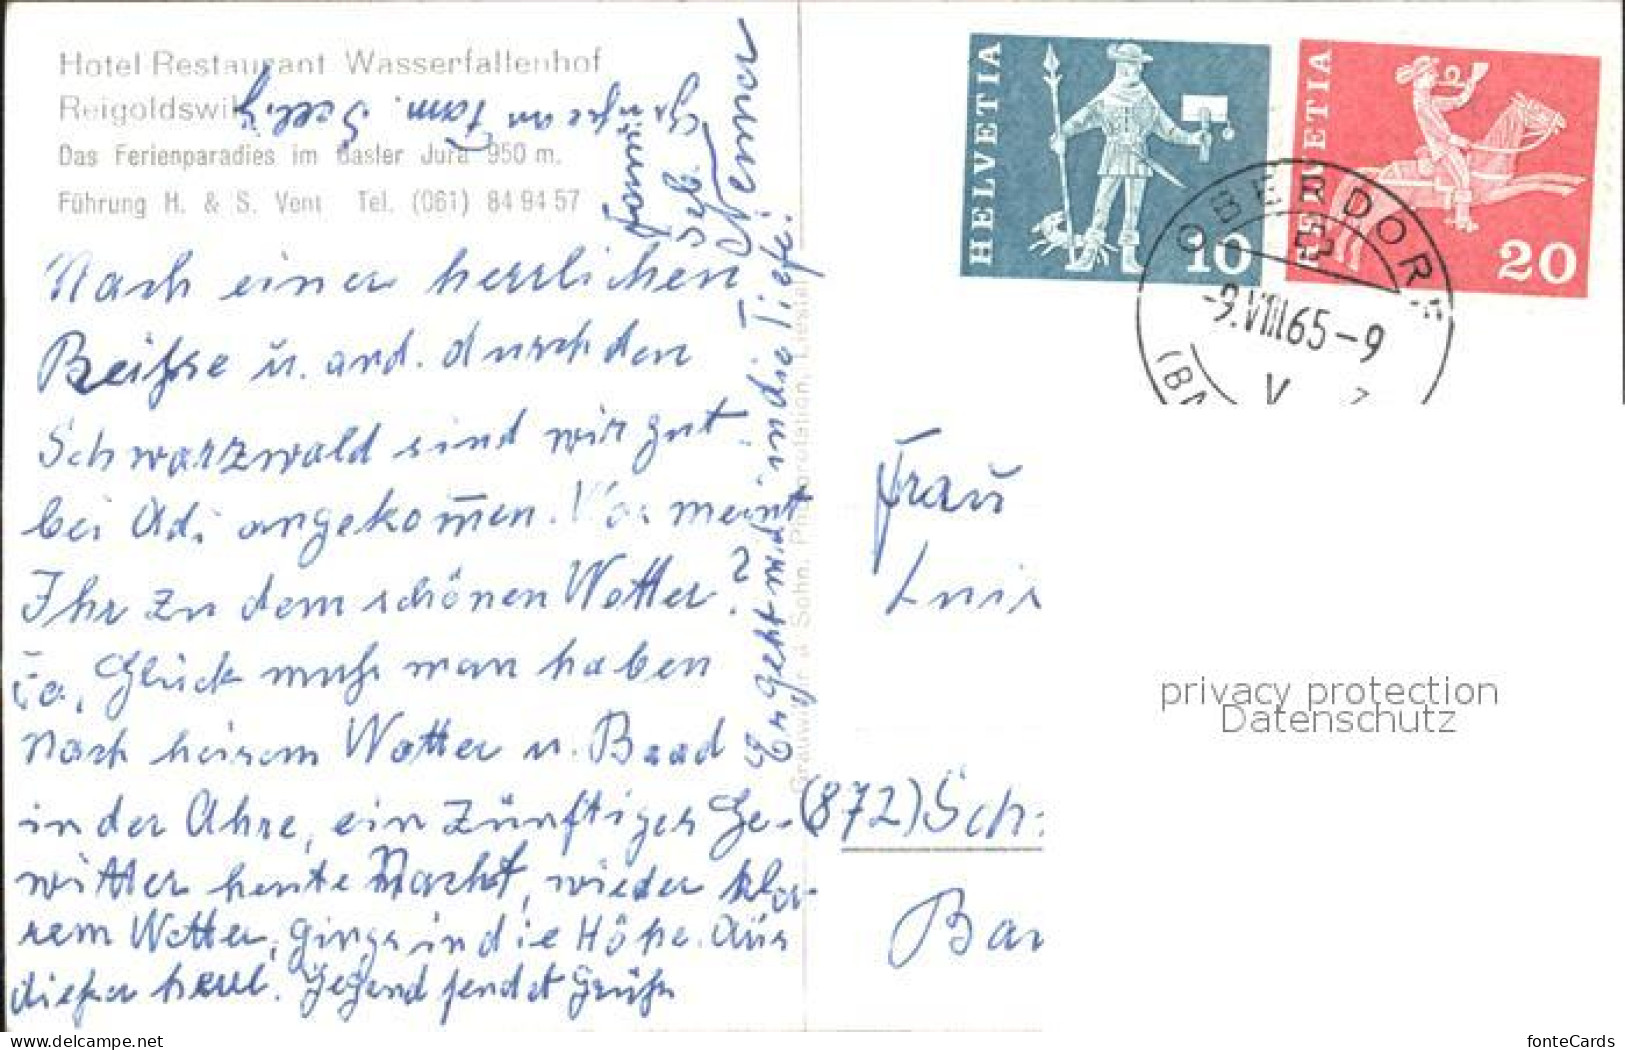 Hotel-Restaurant Wasserfallenhof
Reigoldswil
Das Ferienparadies im Basler Jura 950 m.
Führung H. & S. Vent Tel. (061) 84 94 57
Nach einer herrlichen
Reise ü. and. durch den
Schwarzwald sind wir gut
bei Adi angekom̅en. Was meint
Ihr zu dem schönen Wetter?
Ja, Glück muß man haben
Nach heisem Wetter u. Baad
in der Ahre, ein zünftiges Ge-
witter heute Nacht, wieder kla-
rem Wetter, gings in die Höhe. Aus
dieser herrl. Gegend sendet Grüße
Werner
Er geht mid in die Tiefe!
Grüße an Fam.
HELVETIA
10
HELVETIA
20
OBERDORF
-9.VIII65-9
(BA
Grauwiler & Sohn, Photorotation, Liestal
Frau
Luis
(872) Sch
Bar
privacy protection
Datenschutz
www.delcampe.net
fonteCards